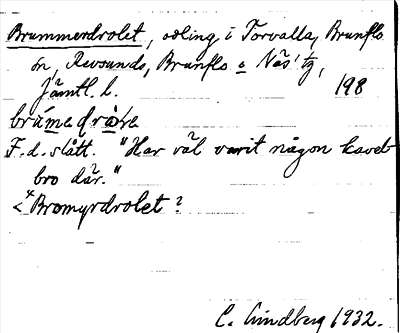 Brummerdrolet, odling i Torvalla, Brunflo
sn, Revsunds, Brunflo o Näs' tg,
Jämtl. l. 198
F. d. slått. "Har väl varit någon kavel-
bro där."
< *Bromyrdrolet?
C. Lindberg 1932.